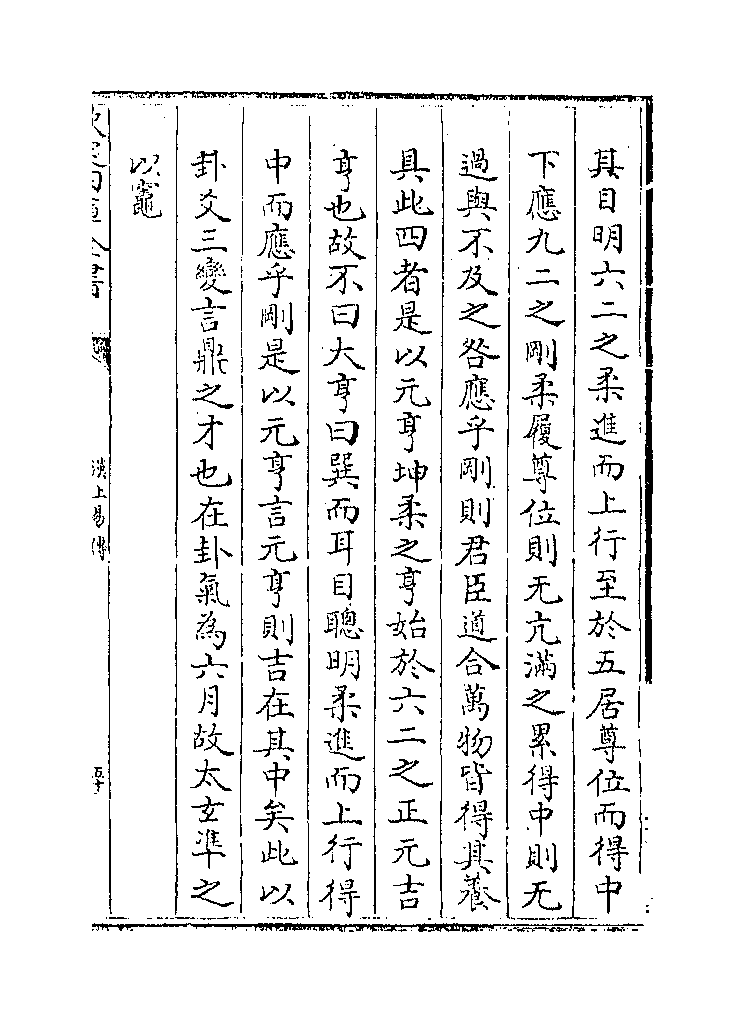 其目明六二之柔進而上行至於五居尊位而得中
下應九二之剛柔履尊位則无亢滿之累得中則无
過與不及之咎應乎剛則君臣道合萬物皆得其養
具此四者是以元亨坤柔之亨始於六二之正元吉
亨也故不曰大亨曰巽而耳目聰明柔進而上行得
中而應乎剛是以元亨言元亨則吉在其中矣此以
卦爻三變言鼎之才也在卦氣為六月故太玄準之
以竈
漢上易傳